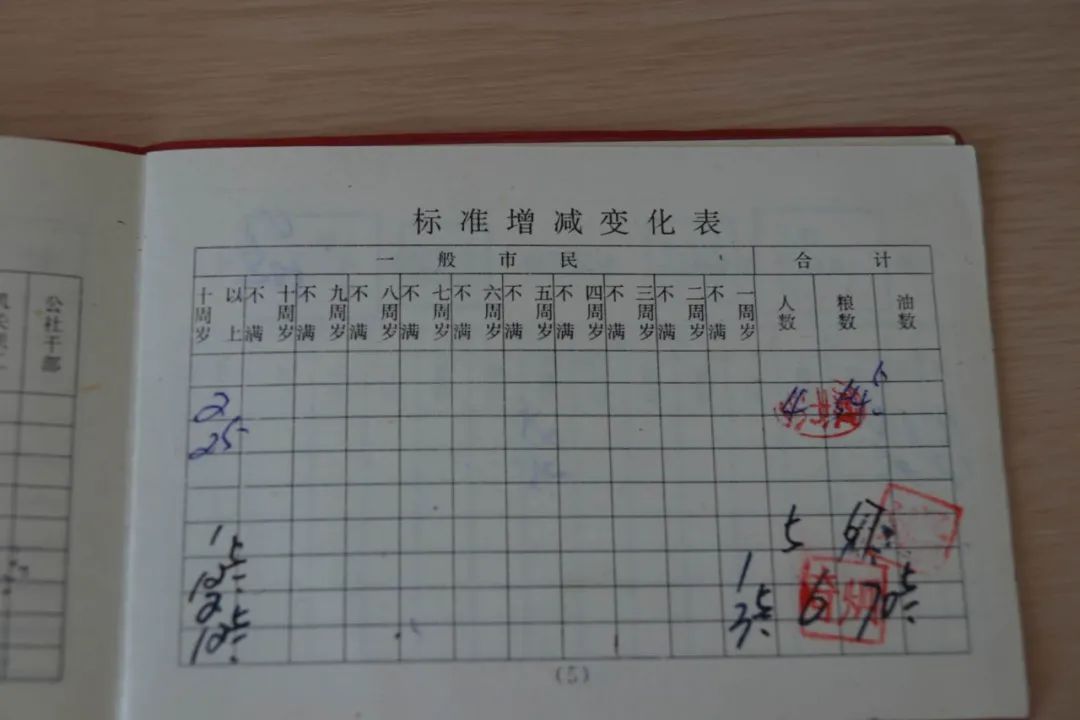 标准增减变化表
一般市民 合计
十周岁以上 不满十周岁 不满九周岁 不满八周岁 不满七周岁 不满六周岁 不满五周岁 不满四周岁 不满三周岁 不满二周岁 不满一周岁 人数 粮数 油数
公社干部
2 4
25
1 5
12.5
2 1 6 70.5
12.5 3.5
(5)